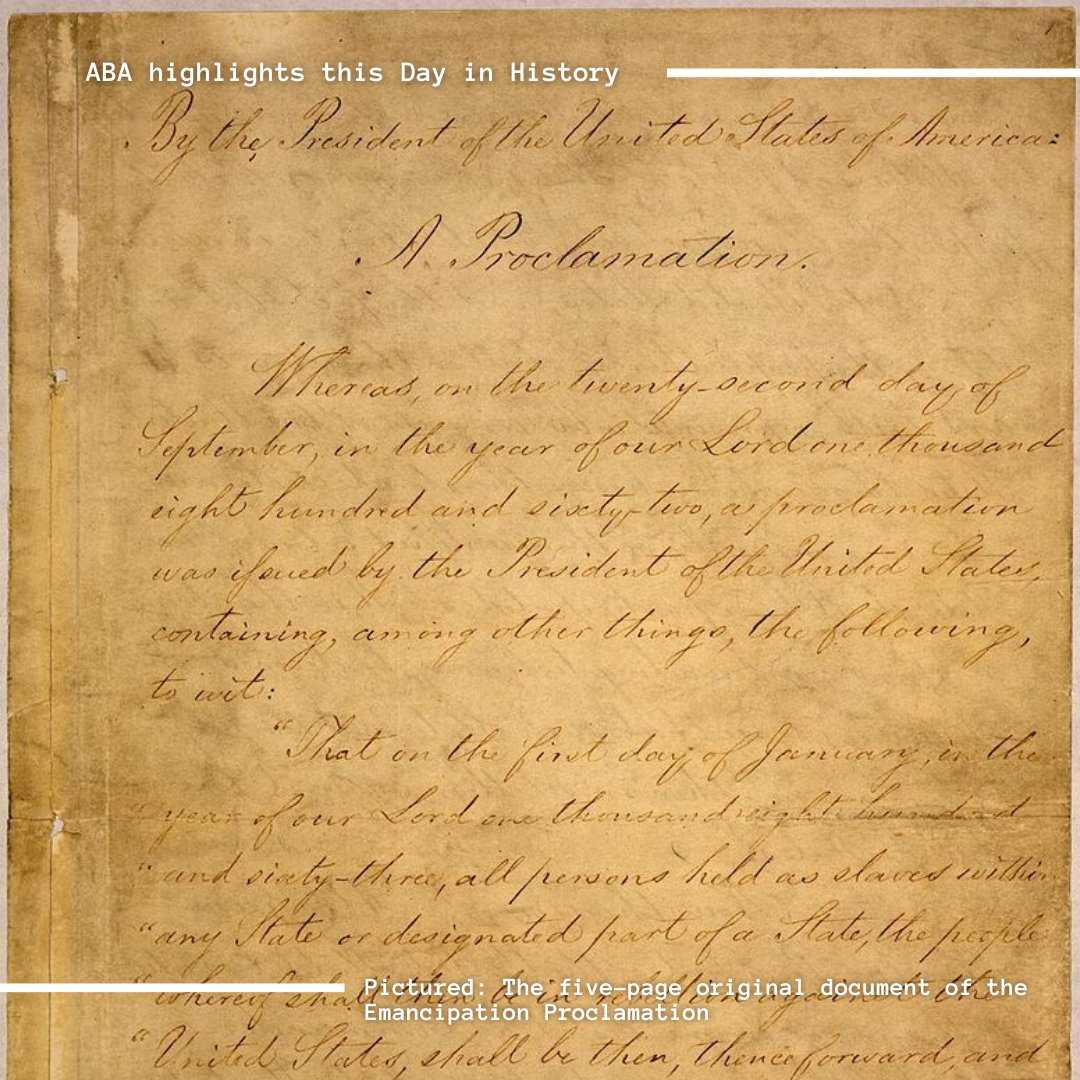 ABA highlights this Day in History
By the President of the United States of America:
A Proclamation.
Whereas, on the twenty-second day of
September, in the year of our Lord one thousand
eight hundred and sixty-two, a proclamation
was issued by the President of the United States,
containing, among other things, the following,
to wit:
"That on the first day of January, in the
"year of our Lord one thousand eight hundred
"and sixty-three, all persons held as slaves within
"any State or designated part of a State, the people
"whereof shall then be in rebellion against the
Pictured: The five-page original document of the
Emancipation Proclamation
"United States, shall be then, thenceforward, and